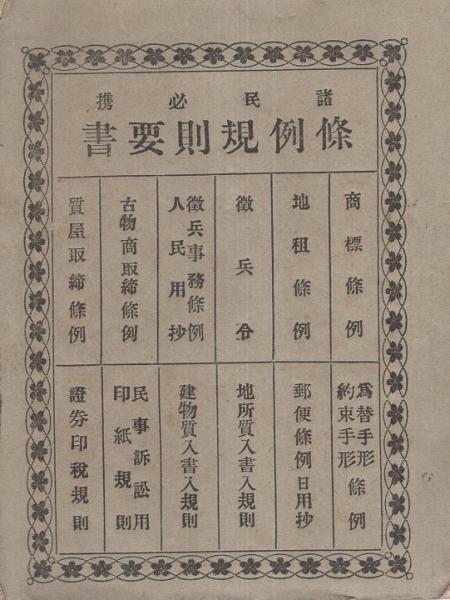 諸民必携
條例規則要書
商標條例
地租條例
徴兵令
徴兵事務條例
人民用抄
古物商取締條例
質屋取締條例
為替手形
約束手形
條例
郵便條例日用抄
地所質入書入規則
建物質入書入規則
民事訴訟用
印紙規則
證券印税規則